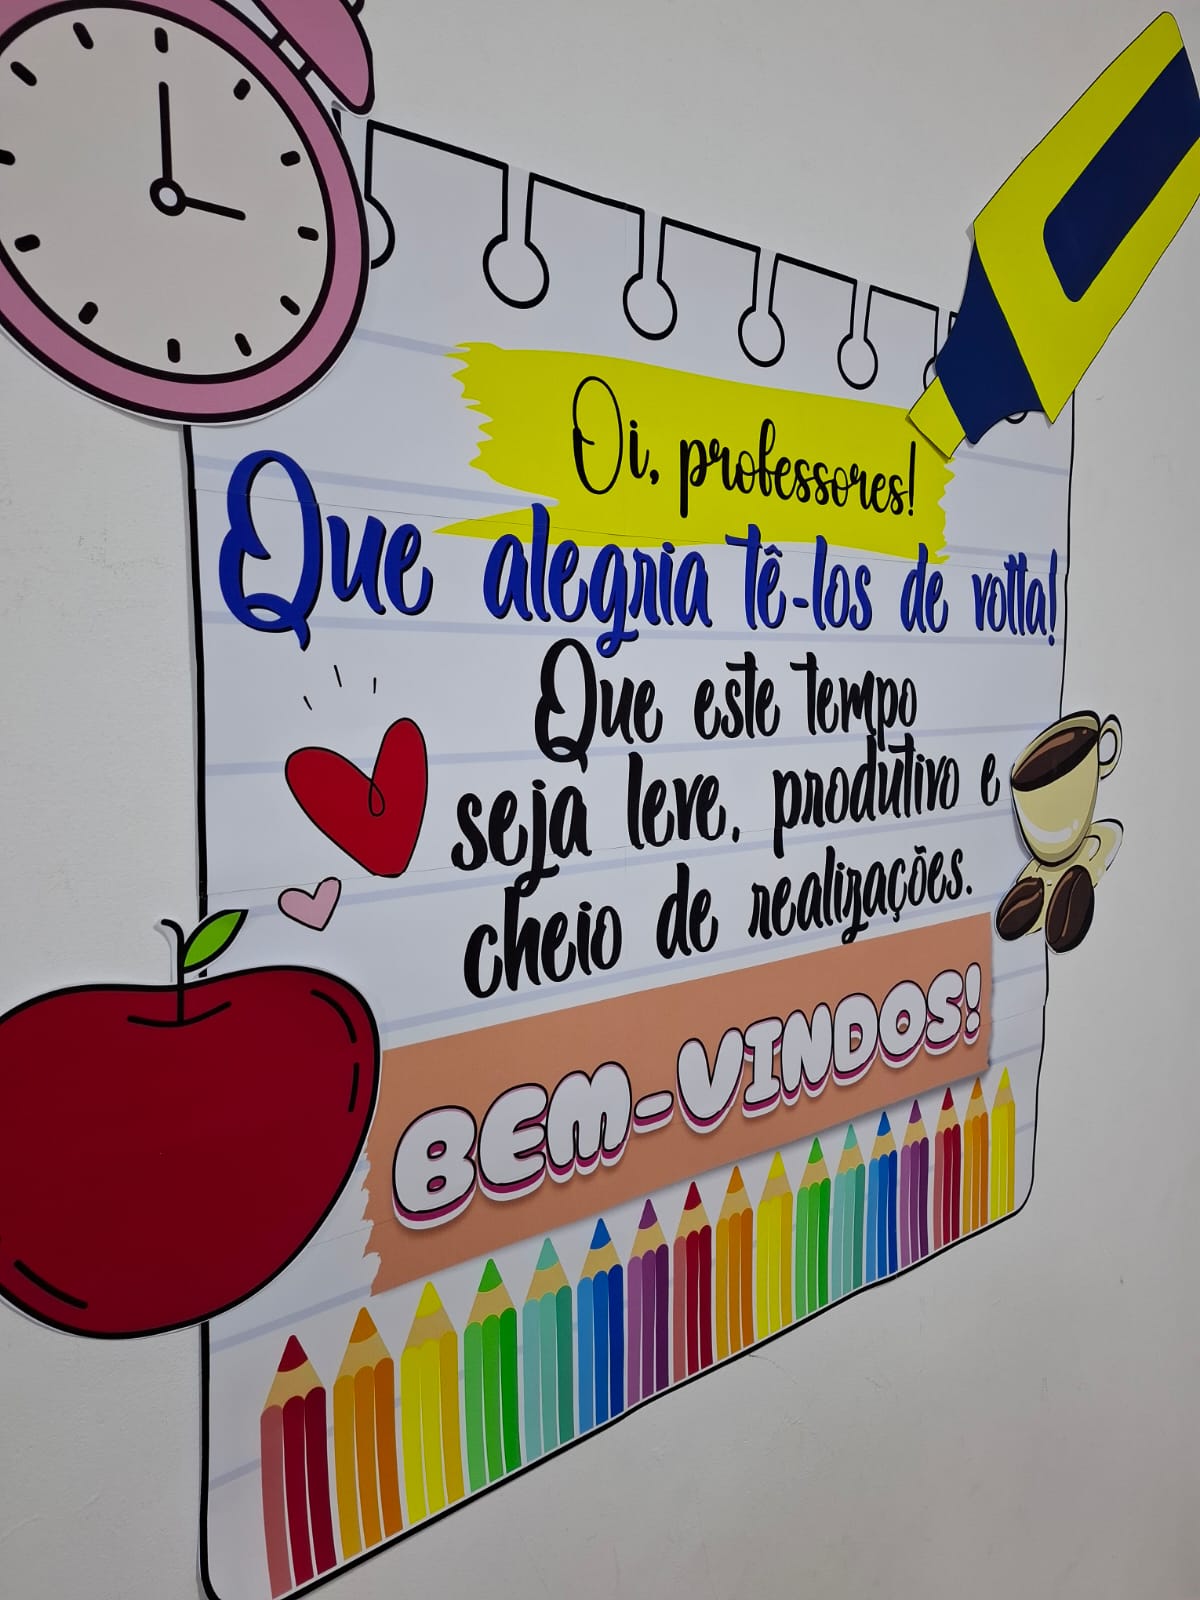 Oi, professores!
Que alegria tê-los de volta!
Que este tempo
seja leve, produtivo e
cheio de realizações.
BEM-VINDOS!